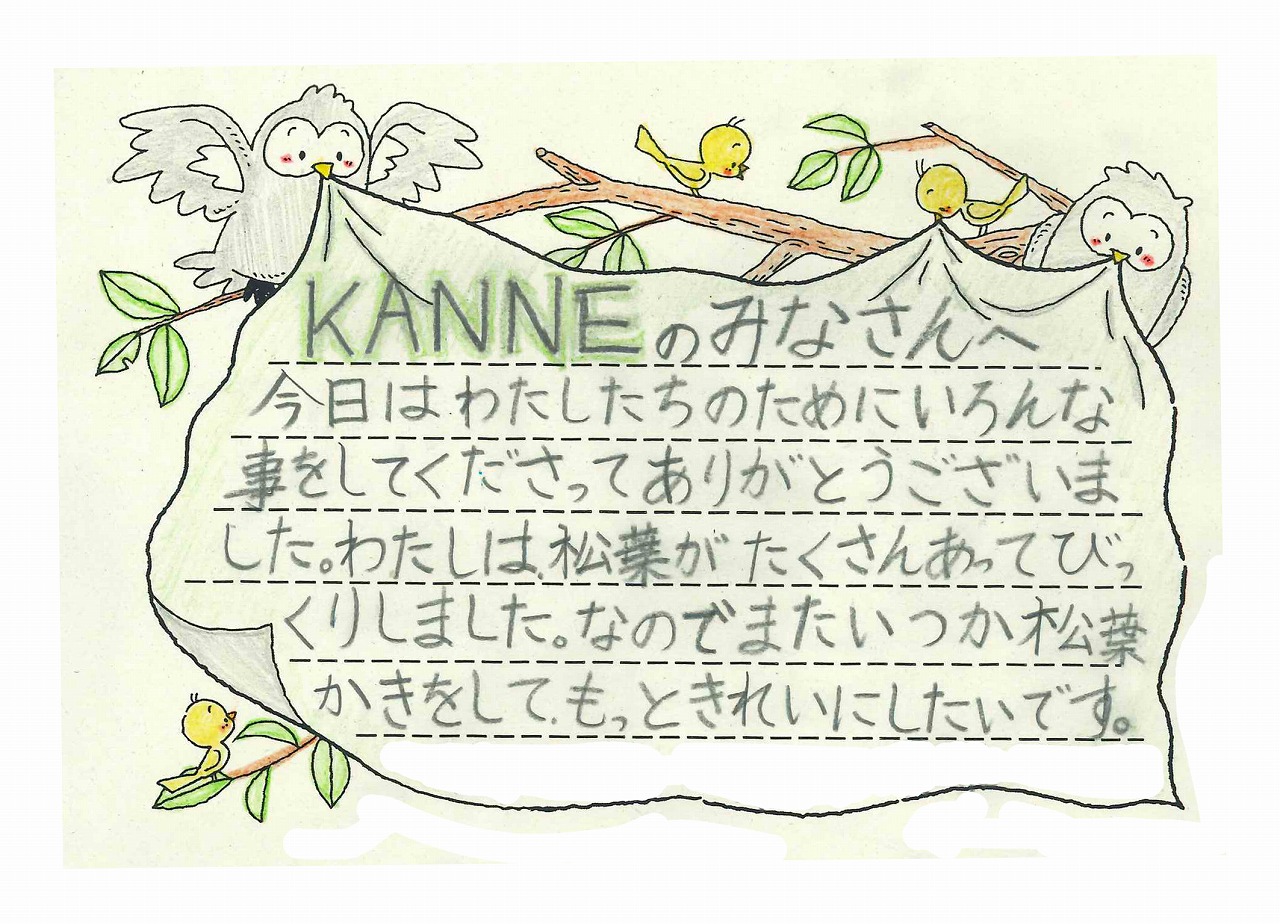 KANNEのみなさんへ
今日はわたしたちのためにいろんな
事をしてくださってありがとうございま
した。わたしは、松葉がたくさんあってびっ
くりしました。なのでまたいつか松葉
かきをして、もっときれいにしたいです。